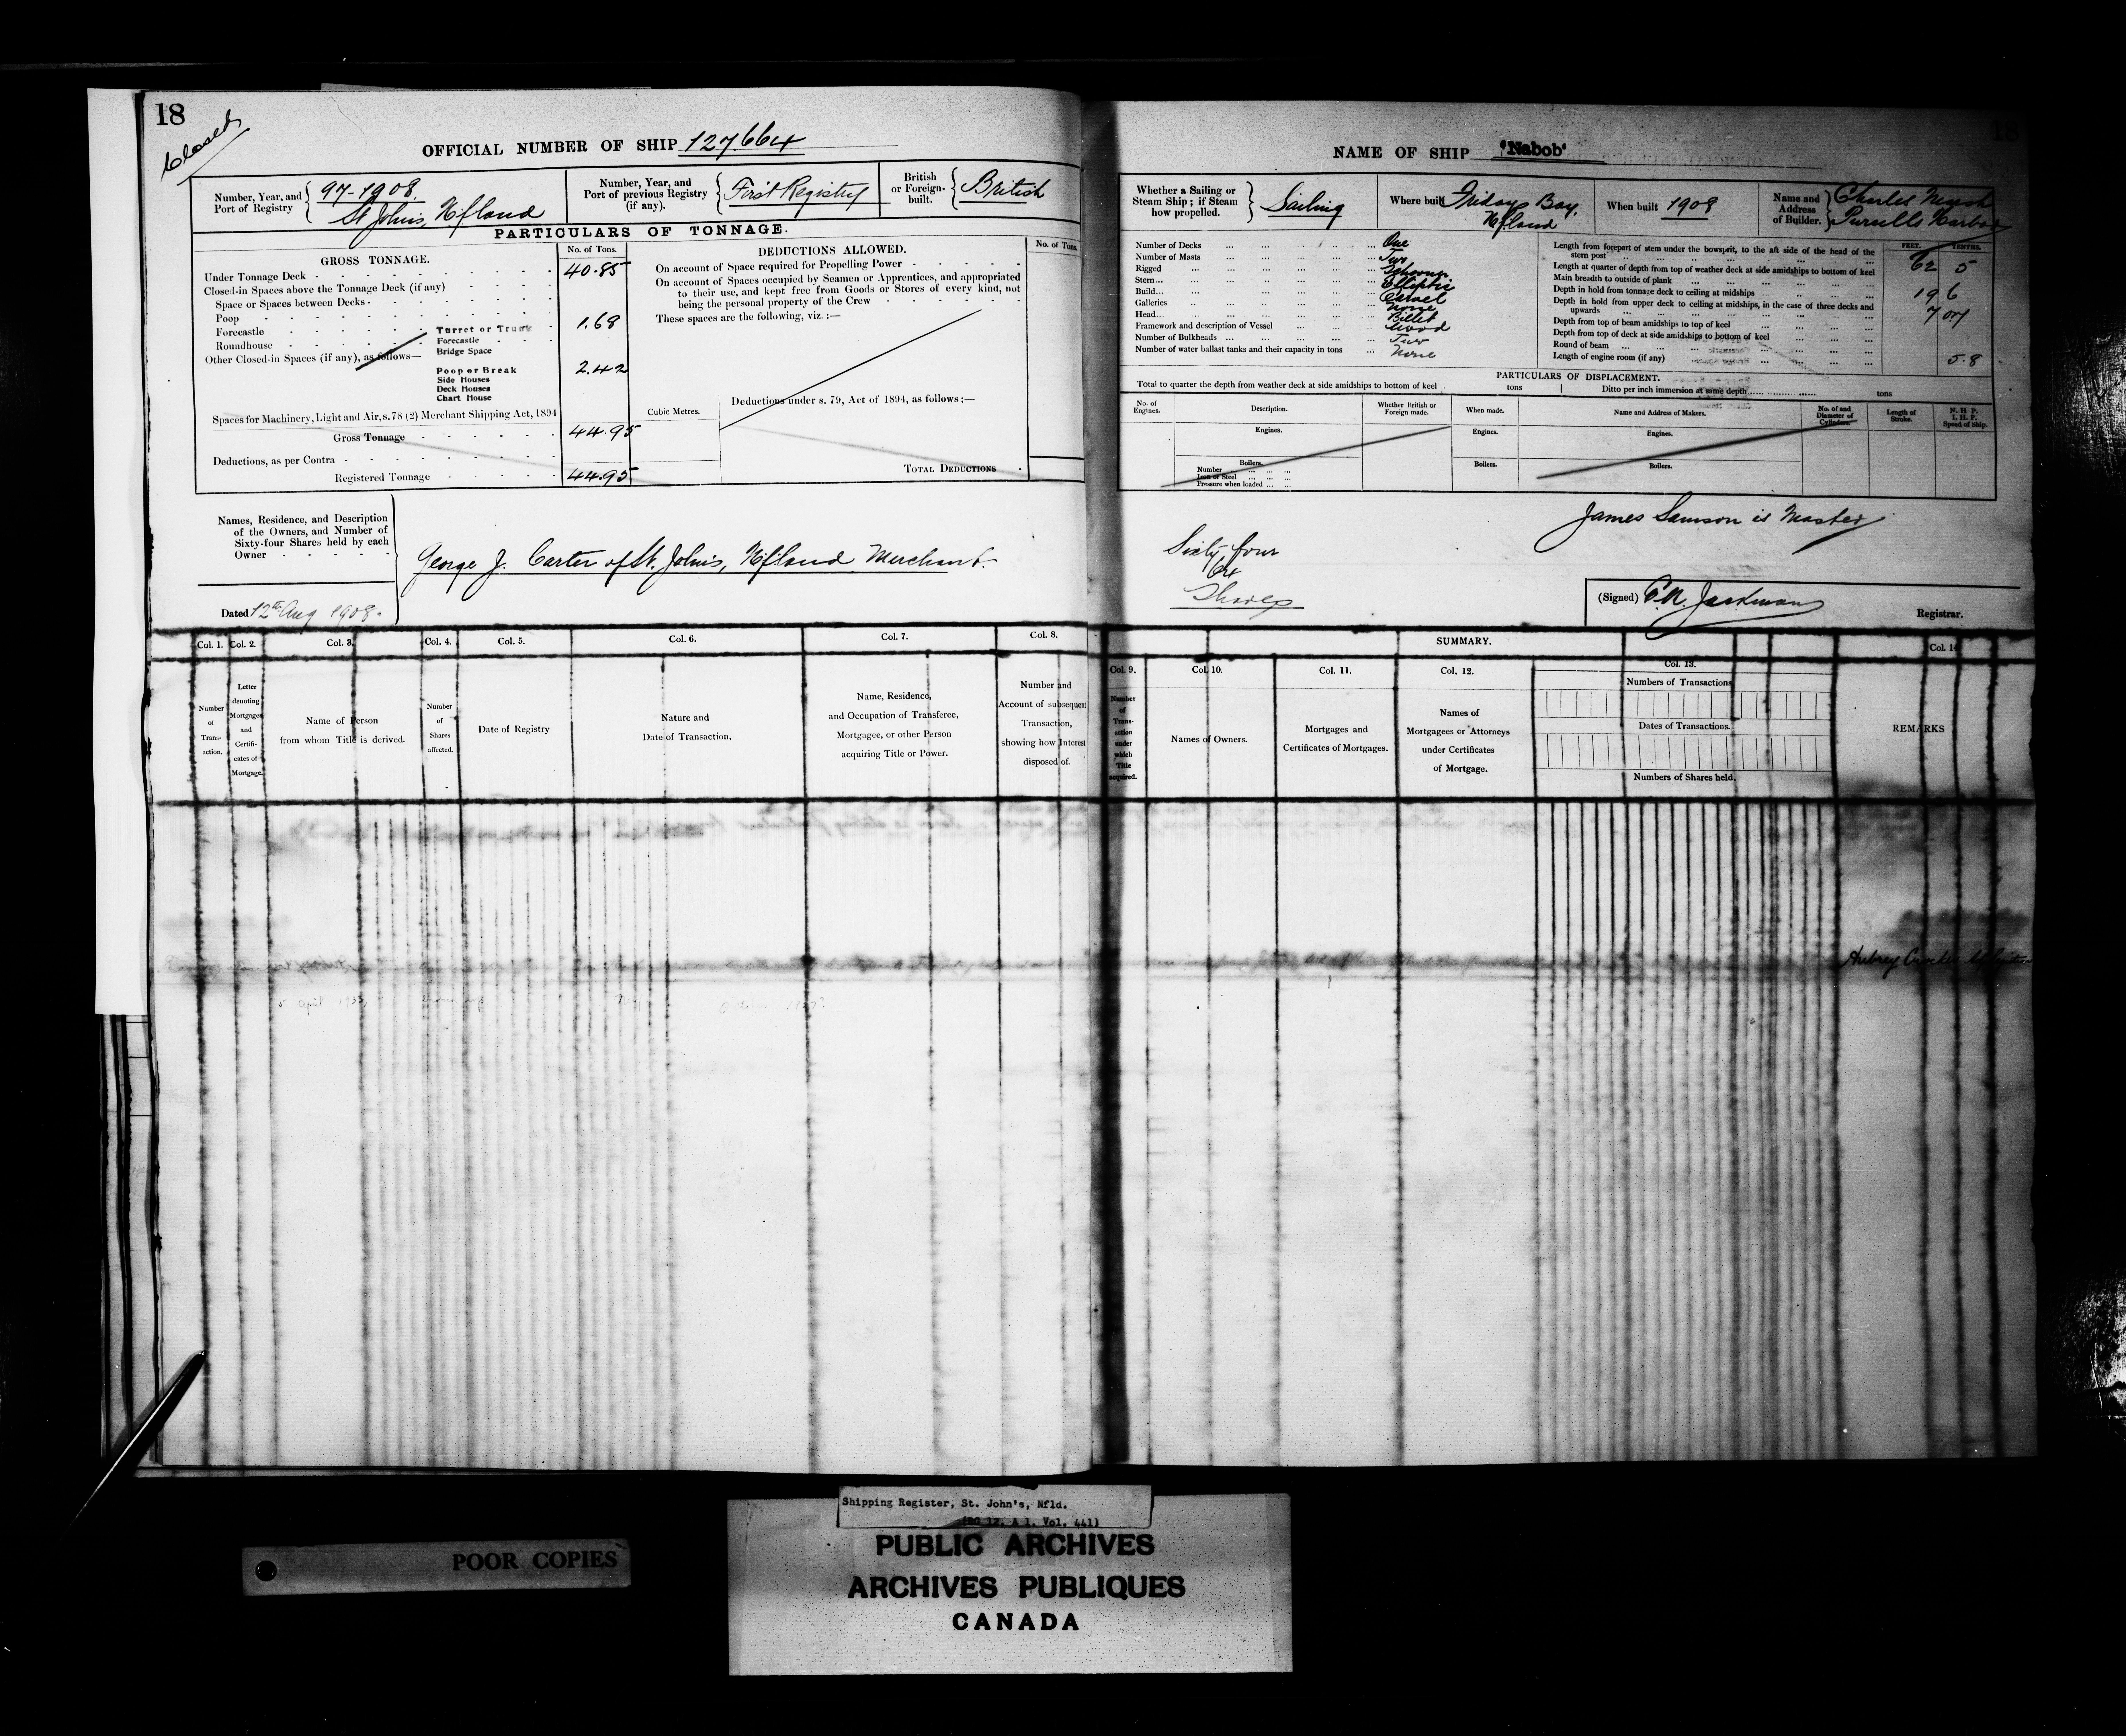 18
Closed
OFFICIAL NUMBER OF SHIP 127.664
Number, Year, and Port of Registry
97-1908.
St Johns, Nfland
Number, Year, and Port of previous Registry (if any).
First Registry
British or Foreign-built.
British
PARTICULARS OF TONNAGE.
GROSS TONNAGE.
No. of Tons.
Under Tonnage Deck 40.85
Closed-in Spaces above the Tonnage Deck (if any)
Space or Spaces between Decks
Poop
Forecastle
Roundhouse
Other Closed-in Spaces (if any), as follows—
Turret or Trunk
Forecastle 1.68
Bridge Space
Poop or Break 2.42
Side Houses
Deck Houses
Chart House
Spaces for Machinery, Light and Air, s.78 (2) Merchant Shipping Act, 1894
Gross Tonnage 44.95
Deductions, as per Contra
Registered Tonnage 44.95
Cubic Metres.
DEDUCTIONS ALLOWED.
No. of Tons.
On account of Space required for Propelling Power
On account of Spaces occupied by Seamen or Apprentices, and appropriated
to their use, and kept free from Goods or Stores of every kind, not
being the personal property of the Crew
These spaces are the following, viz. :—
Deductions under s. 79, Act of 1894, as follows :—
TOTAL DEDUCTIONS
Names, Residence, and Description
of the Owners, and Number of
Sixty-four Shares held by each
Owner
George J. Carter of St. Johns, Nfland Merchant.
Dated 12th Aug 1908.
Col. 1. Col. 2. Col. 3. Col. 4. Col. 5. Col. 6. Col. 7. Col. 8.
Number of Trans-action.
Letter denoting Mortgages and Certifi-cates of Mortgage.
Name of Person
from whom Title is derived.
Number of Shares affected.
Date of Registry
Nature and
Date of Transaction.
Name, Residence,
and Occupation of Transferee,
Mortgagee, or other Person
acquiring Title or Power.
Number and
Account of subsequent
Transaction,
showing how Interest
disposed of.
18
NAME OF SHIP 'Nabob'
Whether a Sailing or Steam Ship; if Steam how propelled.
Sailing
Where built
Fridays Bay.
Nfland
When built 1908
Name and Address of Builder.
Charles
Purcells Harbor
Number of Decks One
Number of Masts Two
Rigged Schooner
Stern Elliptic
Build Carvel
Galleries None
Head Billet
Framework and description of Vessel Wood
Number of Bulkheads Two
Number of water ballast tanks and their capacity in tons None
FEET. TENTHS.
Length from forepart of stem under the bowsprit, to the aft side of the head of the
stern post 62 5
Length at quarter of depth from top of weather deck at side amidships to bottom of keel
Main breadth to outside of plank 19 6
Depth in hold from tonnage deck to ceiling at midships 7
Depth in hold from upper deck to ceiling at midships, in the case of three decks and
upwards
Depth from top of beam amidships to top of keel
Depth from top of deck at side amidships to bottom of keel
Round of beam
Length of engine room (if any)
5.8
PARTICULARS OF DISPLACEMENT.
Total to quarter the depth from weather deck at side amidships to bottom of keel tons
Ditto per inch immersion at same depth tons
No. of Engines.
Description.
Whether British or Foreign made.
When made.
Name and Address of Makers.
No. of and Diameter of Cylinders.
Length of Stroke.
N. H. P.
I. H. P.
Speed of Ship.
Engines.
Engines.
Engines.
Boilers.
Number
Iron or Steel
Pressure when loaded
Boilers.
Boilers.
James Samson is Master
Sixty four
Shares
(Signed) Jackman
Registrar.
SUMMARY.
Col. 9. Col. 10. Col. 11. Col. 12. Col. 13. Col. 14
Number of Trans-action under which Title acquired.
Names of Owners.
Mortgages and
Certificates of Mortgages.
Names of
Mortgagees or Attorneys
under Certificates
of Mortgage.
Numbers of Transactions
Dates of Transactions.
Numbers of Shares held.
REMARKS
Aubrey
Shipping Register, St. John's, Nfld.
(RG 12, A 1, Vol. 441)
PUBLIC ARCHIVES
ARCHIVES PUBLIQUES
CANADA
POOR COPIES